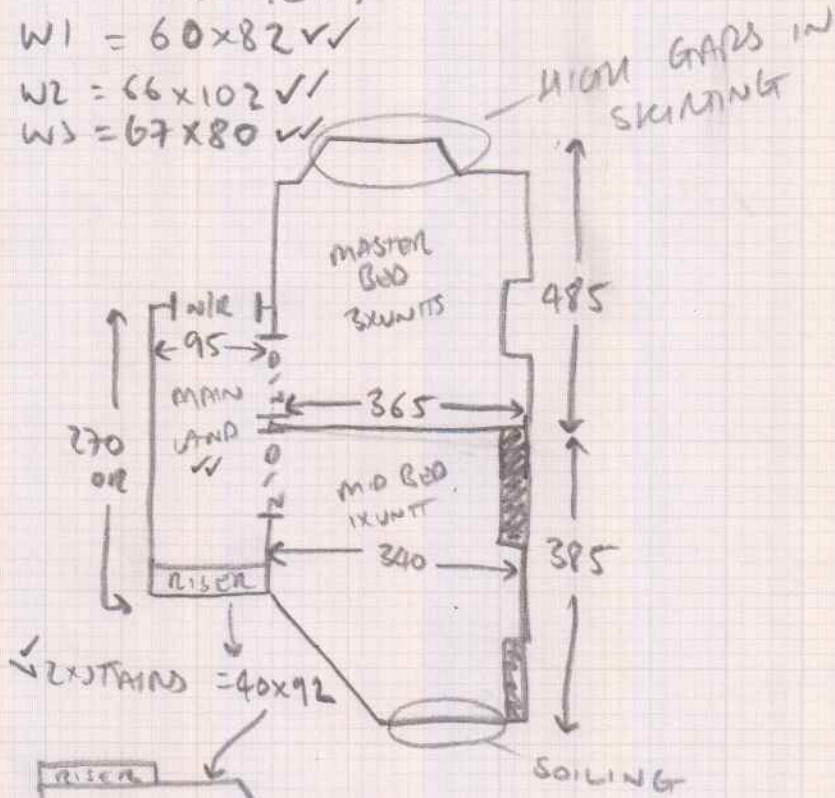 W1 = 60x82 ✓✓
W2 = 66x102 ✓✓
W3 = 67x80 ✓✓
HIGH GAPS IN
SKIRTING
MASTER
BED
3xUNITS
N/R
95
485
MAIN
LAND
✓✓
365
270
OR
MID BED
1xUNIT
340
385
RISER
✓ 2xSTAIRS = 40x92
SOILING
RISER